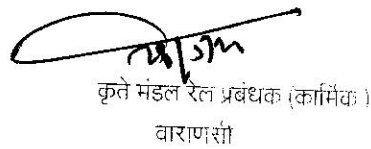 कृते मंडल रेल प्रबंधक (कार्मिक)
वाराणसी